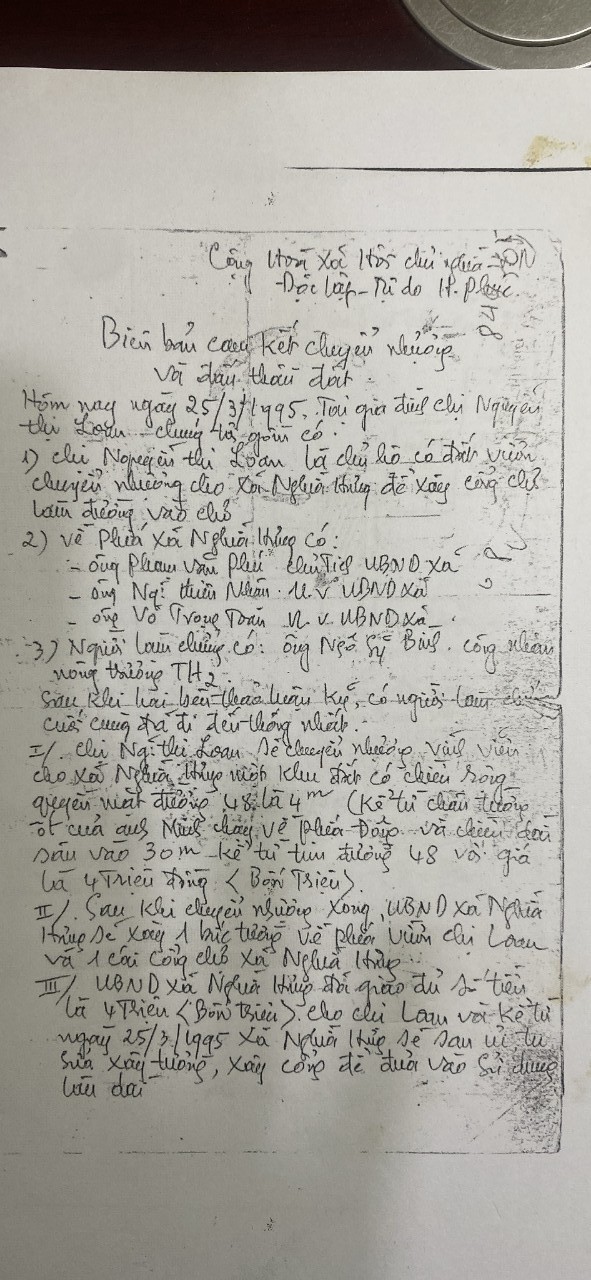 Cộng Hoà Xã Hội chủ nghĩa VN
Độc lập - Tự do H. Phúc
Biên bản cam kết chuyển nhượng
và đấu thầu đất
Hôm nay ngày 25/3/1995. Tại gia đình chị Nguyễn
thị Loan chúng tôi gồm có:
1) chị Nguyễn thị Loan là chủ hộ có đất vườn
chuyển nhượng cho Xã Nghĩa Hưng để xây cổng chợ
làm đường vào chợ
2) về Phía Xã Nghĩa Hưng có:
- ông Phạm Văn Phú chủ Tịch UBND Xã
- ông Ng. Nhân U.V UBND Xã
- ông Võ Trọng Toàn U.V. UBND Xã
3) Người làm chứng có: ông Ngô Sỹ Bình. công nhân
nông trường TH2.
Sau khi hai bên thảo luận kỹ, có người làm chứng
cuối cùng đã đi đến thống nhất.
I/. chị Ng. thị Loan sẽ chuyển nhượng vĩnh viễn
cho xã Nghĩa Hưng một khu đất có chiều rộng
quyền mặt đường 48 là 4m (kể từ chân tường
ốt của anh Minh chạy về phía Đông và chiều dài
sâu vào 30m kể từ tim đường 48 với giá
là 4 Triệu đồng <Bốn Triệu>.
II/. Sau khi chuyển nhượng xong, UBND xã Nghĩa
Hưng sẽ xây 1 bức tường về phía vườn chị Loan
và 1 cái cổng chợ Xã Nghĩa Hưng
III/. UBND xã Nghĩa Hưng đã giao đủ số tiền
là 4 Triệu <Bốn triệu>. cho chị Loan và kể từ
ngày 25/3/1995 Xã Nghĩa Hưng sẽ san ủi tu
sửa xây tường, xây cổng để đưa vào sử dụng
lâu dài